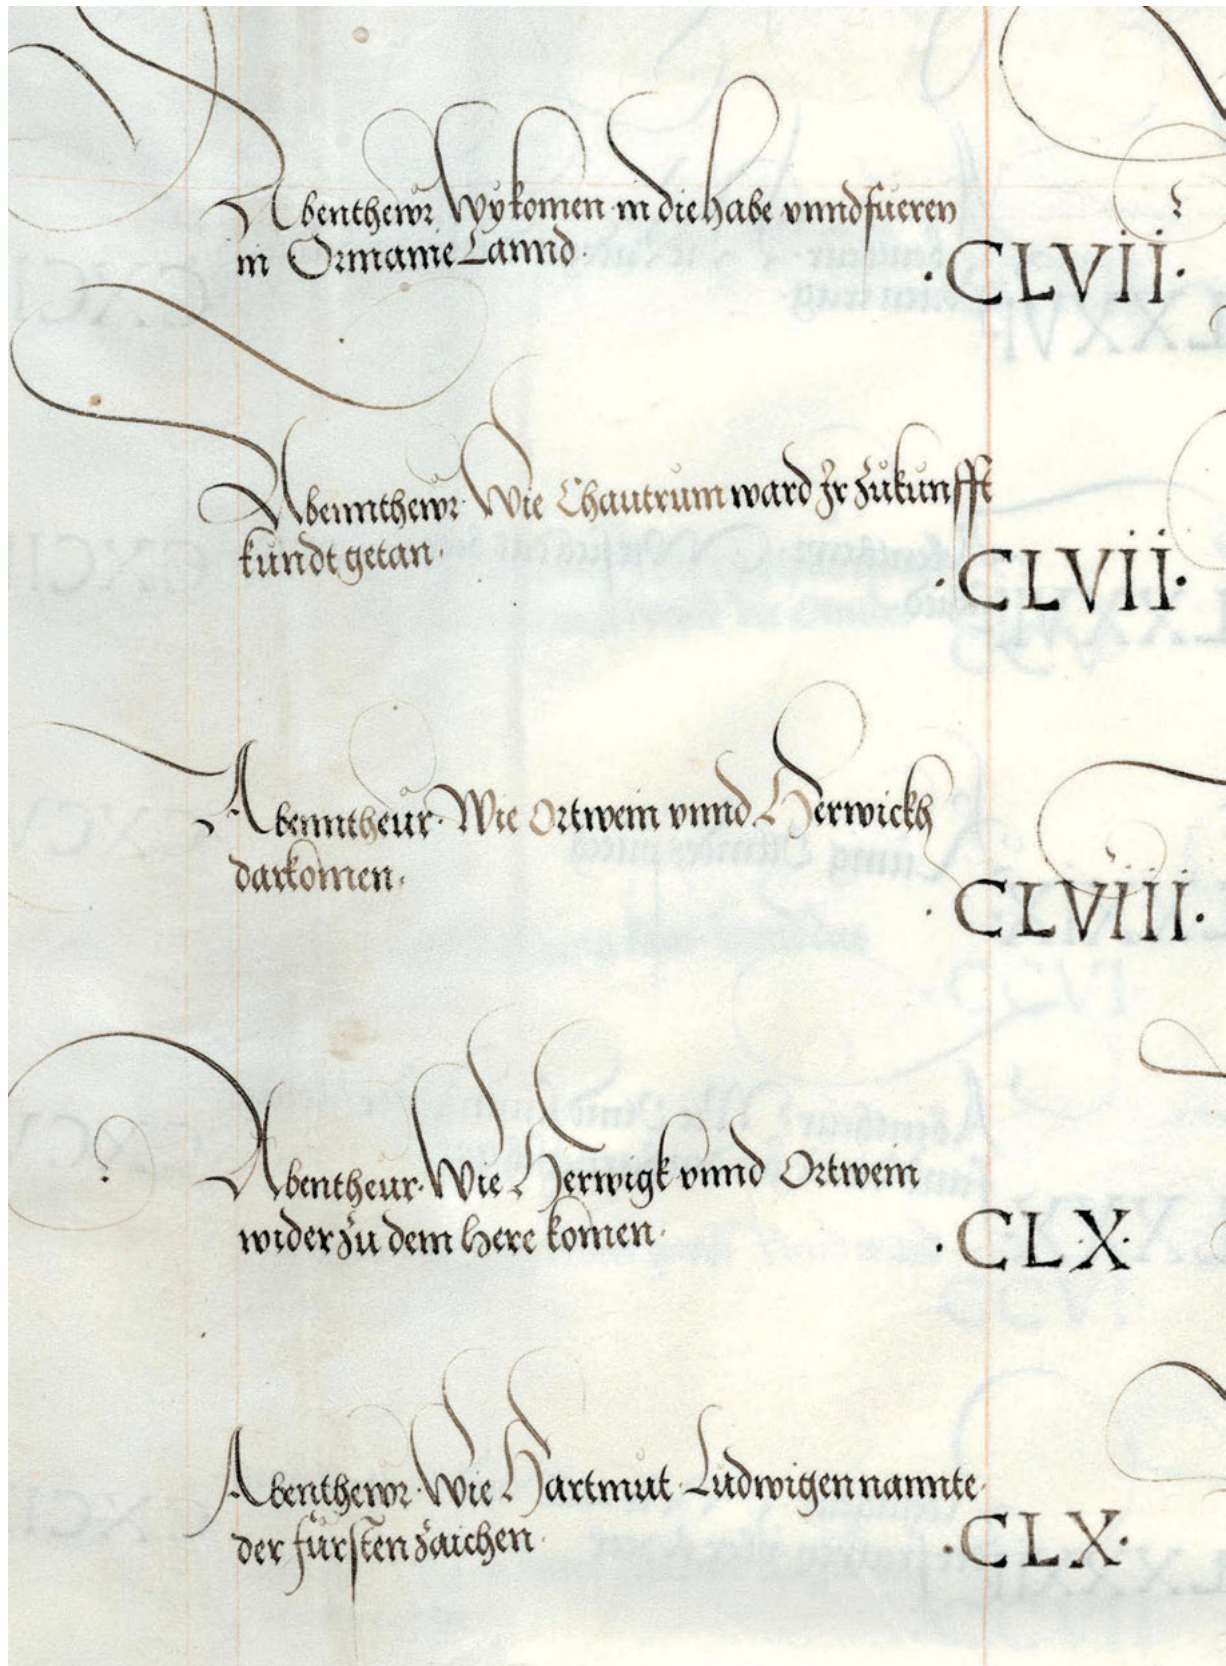 Abenthewr Wy komen in die habe vnnd fueren
in Ormanie Lannd·
·CLVii·
Abenntheur· Wie Chautrum ward Ir zŭkunfft
kundt getan·
·CLVii·
Abenntheŭr· Wie Ortwein vnnd Herwickh
darkomen·
·CLViii·
Abentheur· Wie Herwigk vnnd Ortwein
wider zu dem here komen·
·CLX·
Abenthewr· Wie Hartmŭt Ludwigen nannte·
der fürsten zaichen·
·CLX·